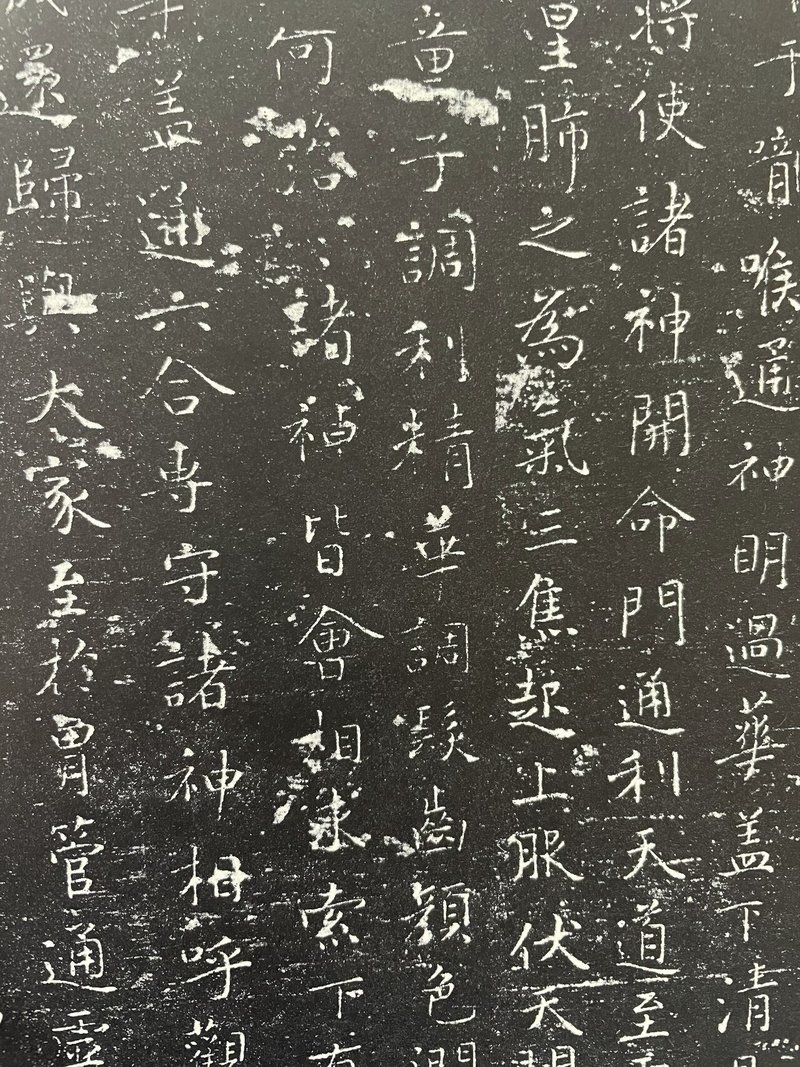 嚨喉通神明過華盖下清
將使諸神開命門通利天道至
肺之為氣三焦起上服伏天
童子調利精華調髮齒顏色潤
何落〻諸神皆會相求索下有
盖遍六合專守諸神相呼觀
還歸與大家至於胃管通虛